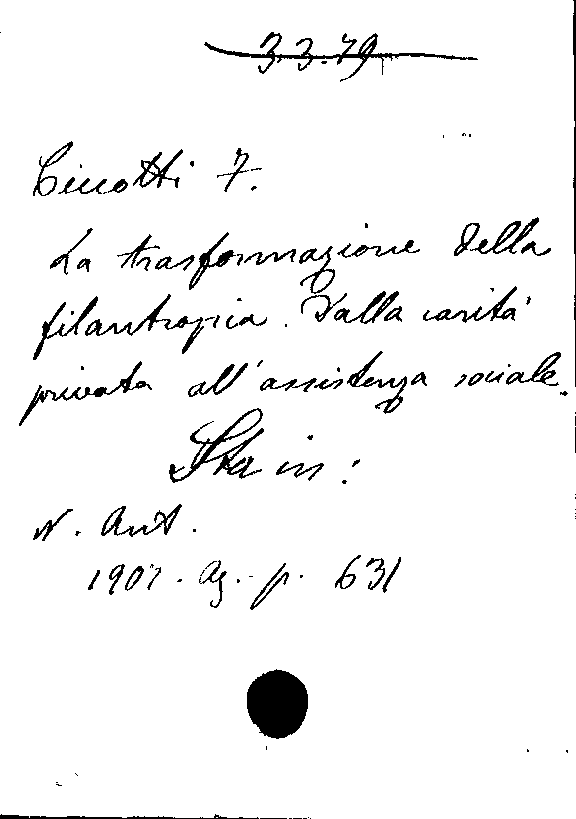 3.3.79
Ciccotti F.
La trasformazione della
filantropia. Dalla carità
privata all'assistenza sociale.
Sta in:
N. Ant.
1907. Ag. p. 631